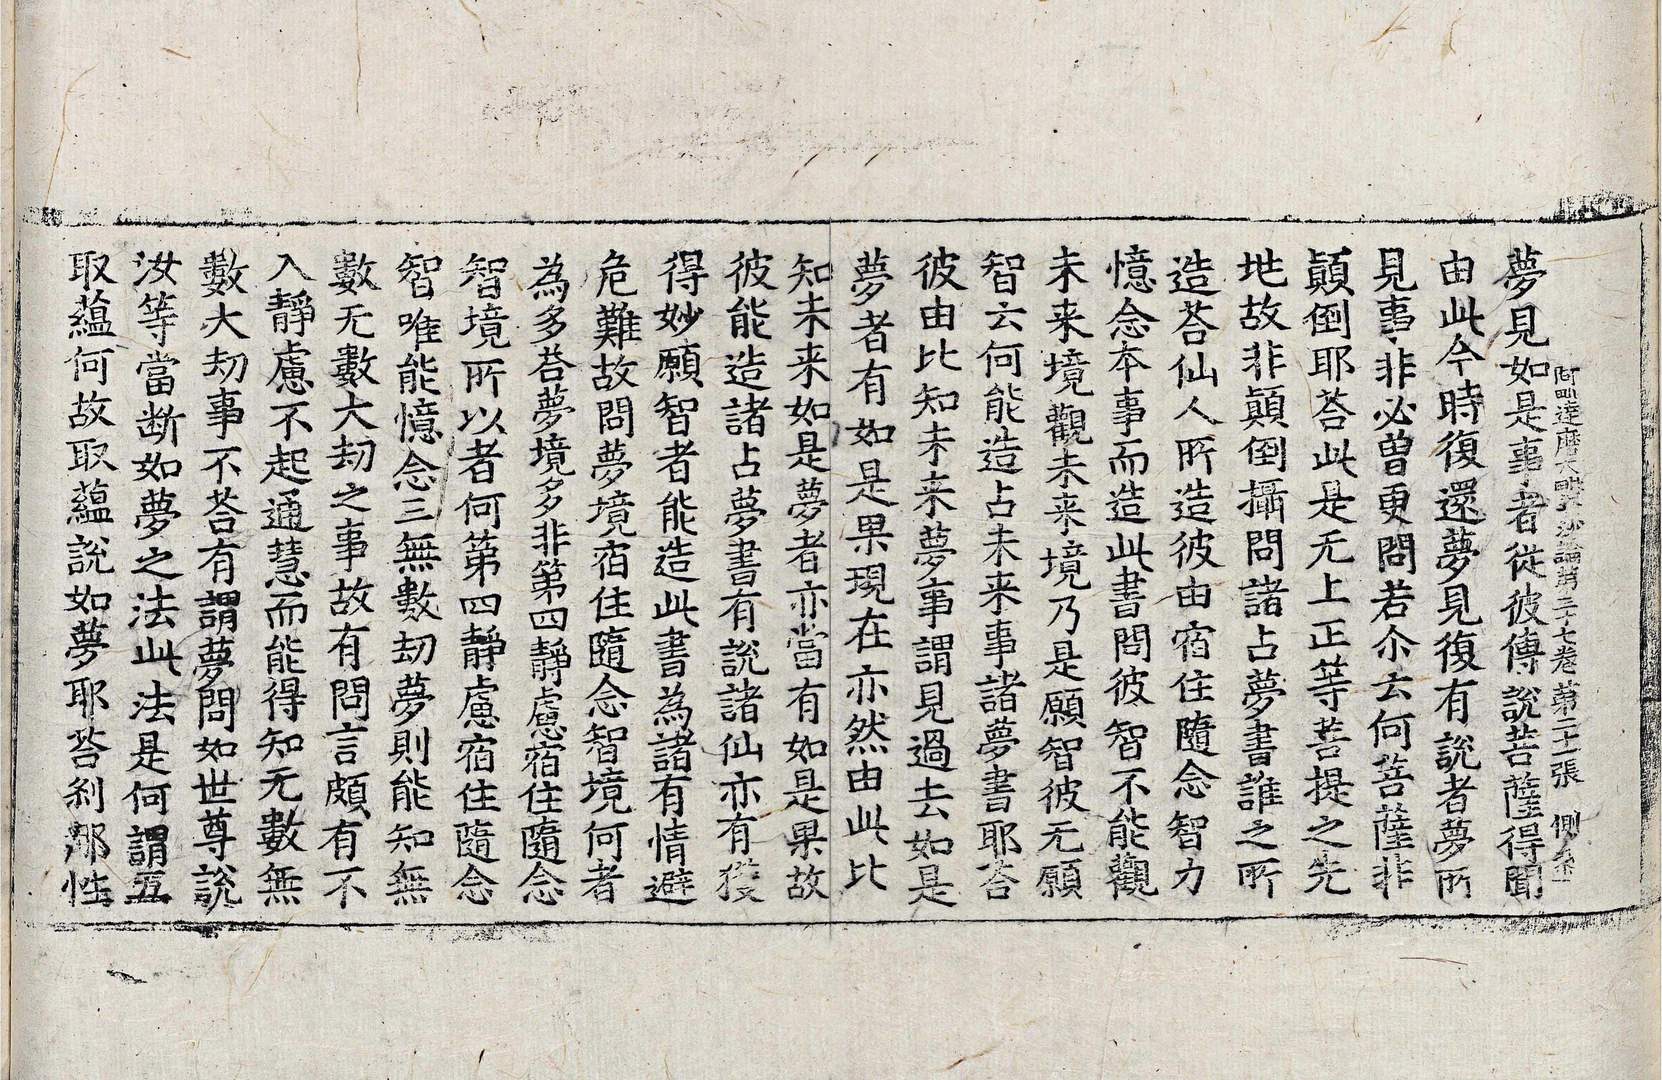 阿毗達磨大毗婆沙論第三十七卷 第二十一張 側
夢見如是事者從彼傳說菩薩得聞
由此今時復還夢見復有說者夢所
見事非必曾更問若尒云何菩薩非
顚倒耶荅此是无上正等菩提之先
地故非顚倒攝問諸占夢書誰之所
造荅仙人所造彼由宿住隨念智力
憶念本事而造此書問彼智不能觀
未来境觀未来境乃是願智彼无願
智云何能造占未来事諸夢書耶荅
彼由比知未来夢事謂見過去如是
夢者有如是果現在亦然由此比
知未来如是夢者亦當有如是果故
彼能造諸占夢書有說諸仙亦有獲
得妙願智者能造此書為諸有情避
危難故問夢境宿住隨念智境何者
為多荅夢境多非第四靜慮宿住隨念
智境所以者何第四靜慮宿住隨念
智唯能憶念三無數劫夢則能知無
數无數大劫之事故有問言頗有不
入靜慮不起通慧而能得知无數無
數大劫事不荅有謂夢問如世尊說
汝等當断如夢之法此法是何謂五
取蘊何故取蘊說如夢耶荅刹那性